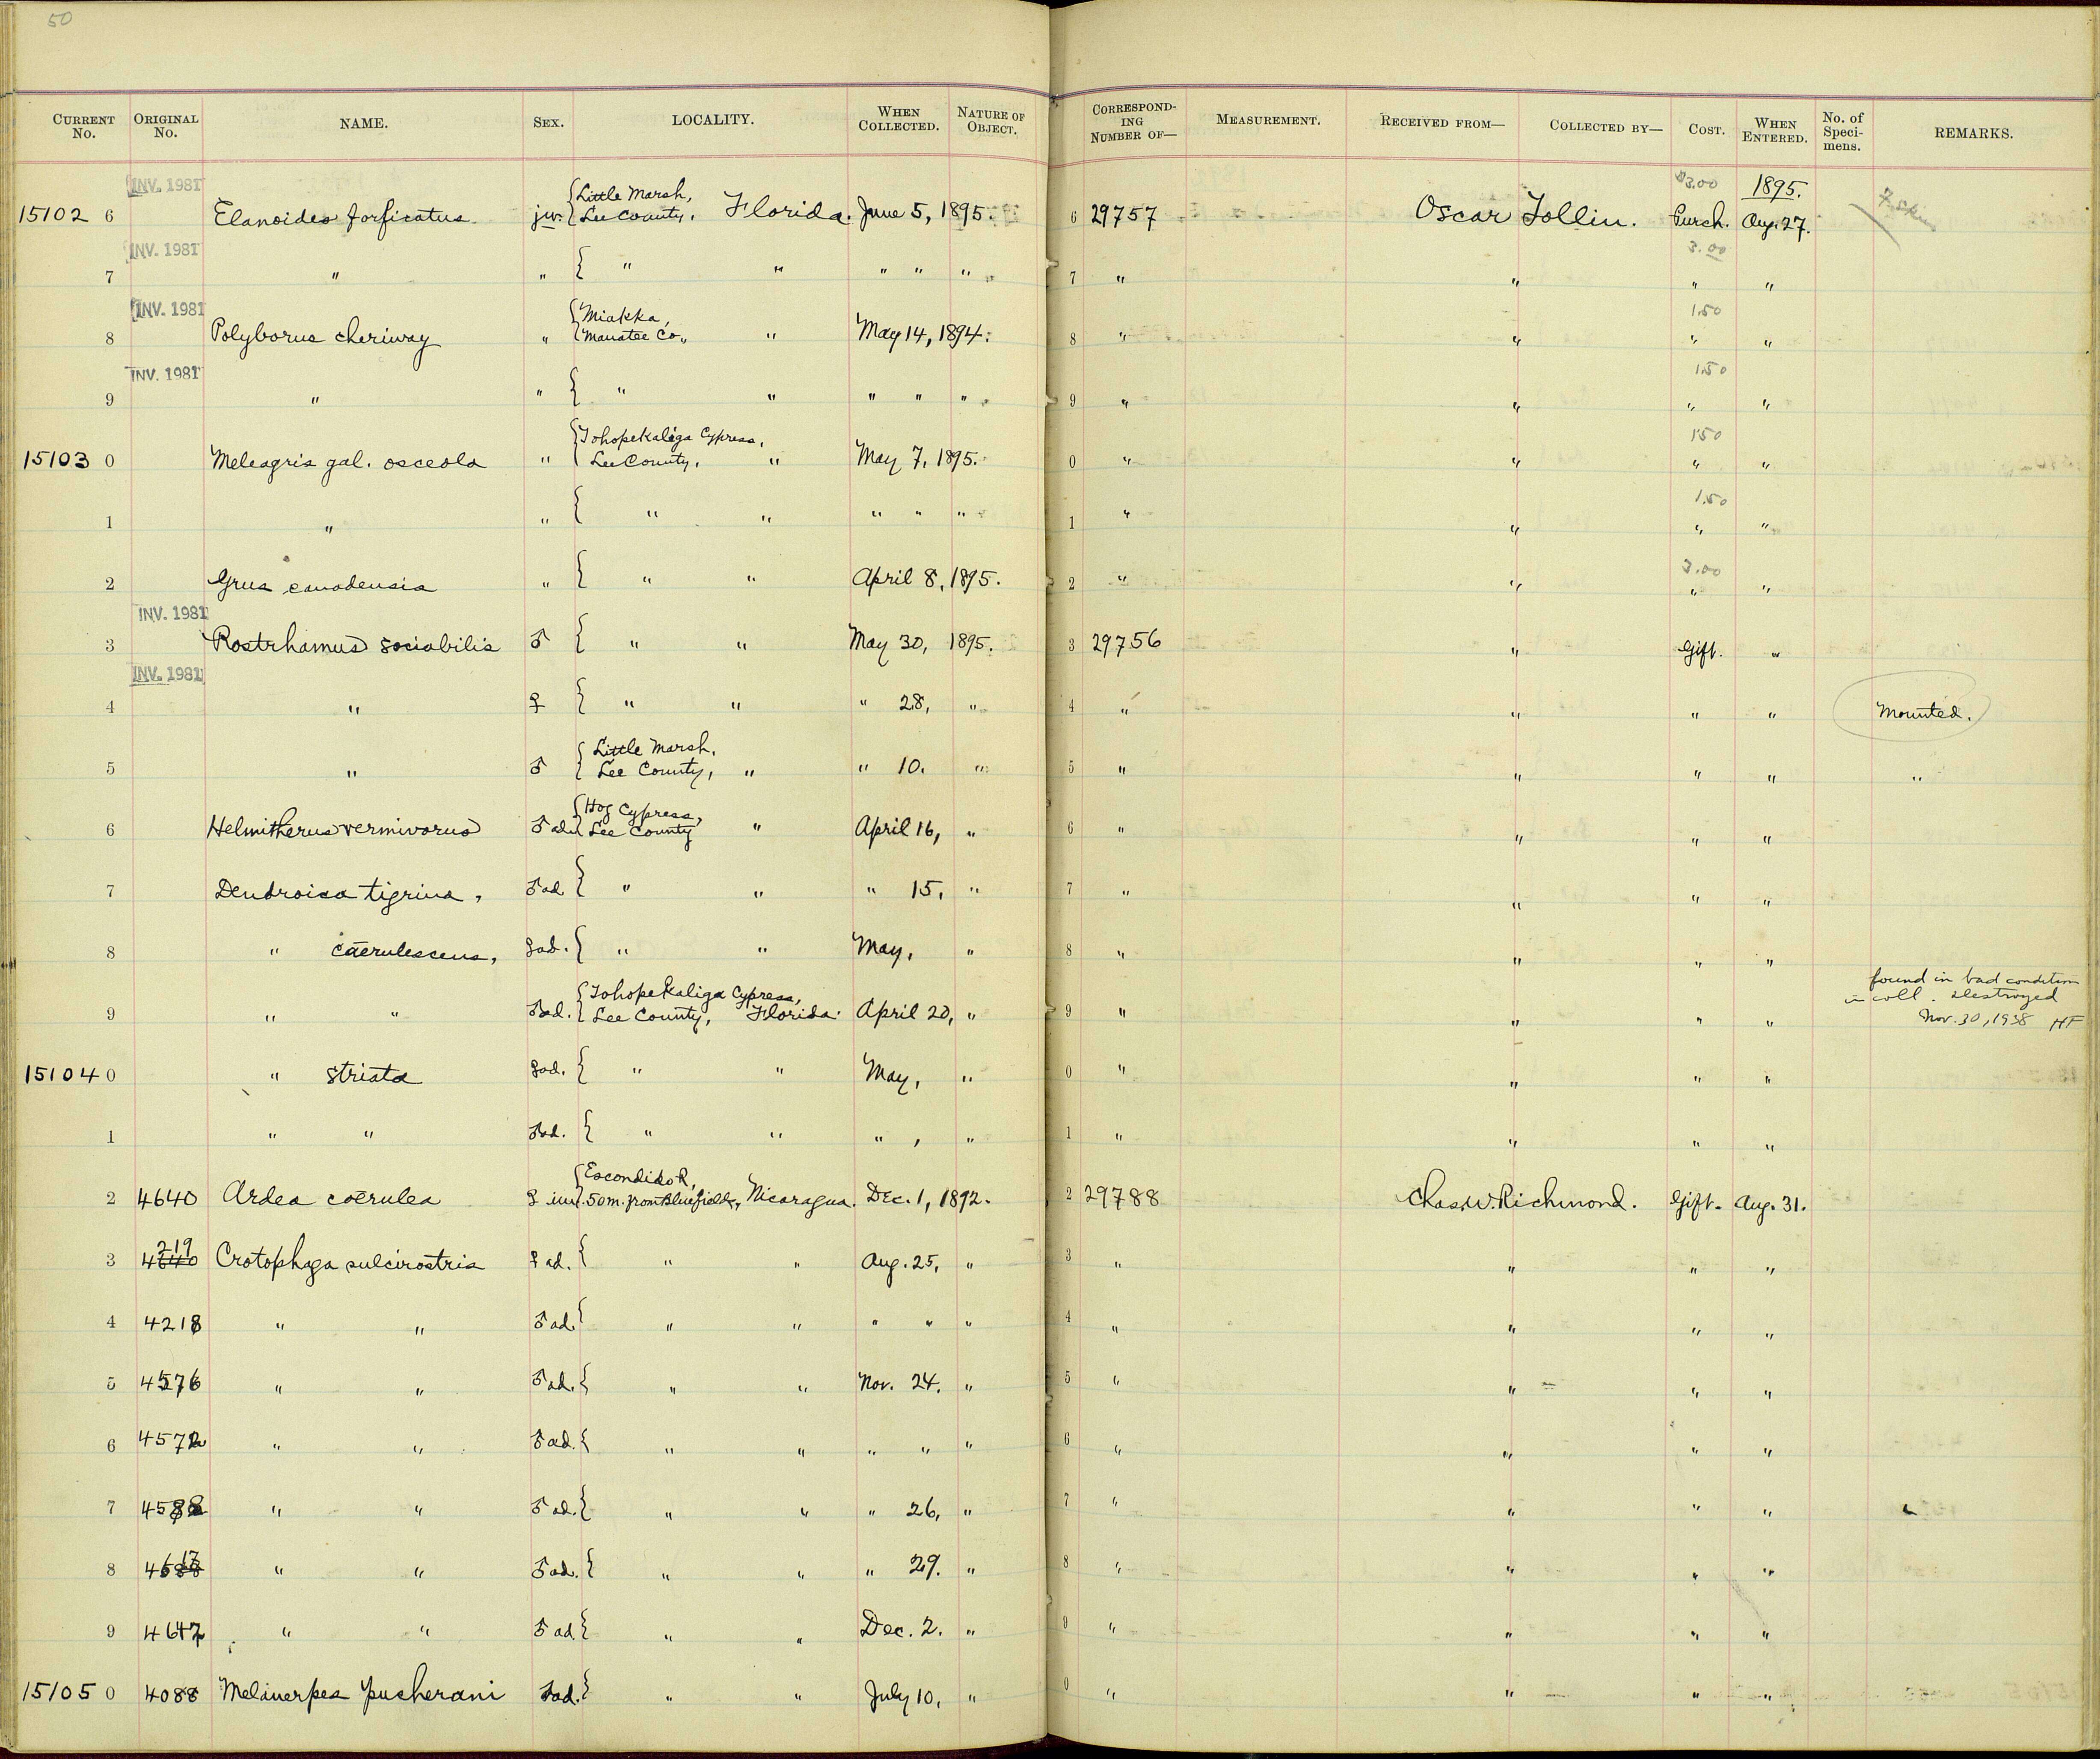 50
CURRENT No. ORIGINAL No. NAME. SEX. LOCALITY. WHEN COLLECTED. NATURE OF OBJECT. CORRESPOND-ING NUMBER OF— MEASUREMENT. RECEIVED FROM— COLLECTED BY— COST. WHEN ENTERED. No. of Speci-mens. REMARKS.
INV. 1981 $3.00 1895.
15102 6 Elanoides forficatus juv. { Little Marsh, Lee County, Florida. June 5, 1895. 6 29757 Oscar Tollin. Purch. Aug. 27.
INV. 1981 3.00
7 " " { " " " " " 7 " " " "
INV. 1981 1.50
8 Polyborus cheriway " { Miakka, Manatee Co., " May 14, 1894. 8 " " " "
INV. 1981 1.50
9 " " { " " " " " 9 " " " "
150
15103 0 Meleagris gal. osceola " { Tohopekaliga Cypress, Lee County, " May 7, 1895. 0 " " " "
1.50
1 " " { " " " " " 1 " " " "
3.00
2 Grus canadensis " { " " April 8, 1895. 2 " " " "
INV. 1981
3 Rostrhamus sociabilis ♂ { " " May 30, 1895. 3 29756 " Gift. "
INV. 1981
4 " ♀ { " " " 28, " 4 " " " " Mounted.
5 " ♂ { Little Marsh, Lee County, " " 10. " 5 " " " " "
6 Helmitherus vermivorus ♂ ad. { Hog Cypress, Lee County " April 16, " 6 " " " "
7 Dendroica tigrina, ♂ ad { " " " 15, " 7 " " " "
8 " caerulescens, ♀ ad. { " " May, " 8 " " " "
9 " " ♂ ad. { Tohopekaliga Cypress, Lee County, Florida. April 20, " 9 " " " " found in bad condition
in coll. Destroyed
Nov. 30, 1938 HF
15104 0 " striata ♀ ad. { " " May, " 0 " " " "
1 " " ♂ ad. { " " " , " 1 " " " "
2 4640 Ardea coerulea ♀ im. { Escondido R, 50 m. from Bluefields, Nicaragua. Dec. 1, 1892. 2 29788 Chas. W. Richmond. Gift. Aug. 31.
219
3 4640 Crotophaga sulcirostris ♀ ad. { " " Aug. 25, " 3 " " " "
4 4218 " " ♂ ad. { " " " " " 4 " " " "
5 4576 " " ♂ ad. { " " Nov. 24. " 5 " " " "
6 4572 " " ♂ ad. { " " " " " 6 " " " "
7 4588 " " ♂ ad. { " " " 26, " 7 " " " "
8 " " ♂ ad. { " " " 29. " 8 " " " "
9 4647 " " ♂ ad. { " " Dec. 2. " 9 " " " "
15105 0 4088 Melanerpes pucherani ♂ ad. { " " July 10, " 0 " " " "